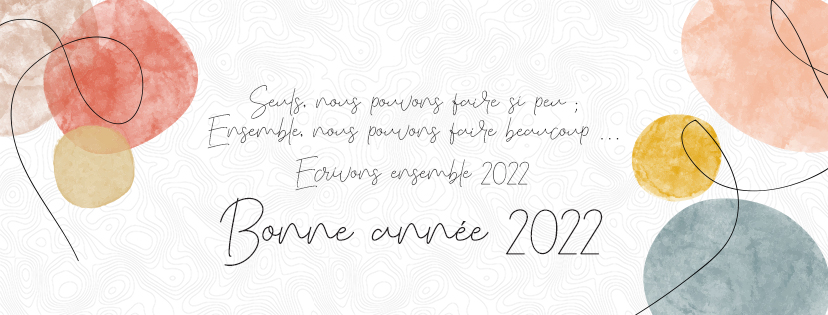 Seuls, nous pouvons faire si peu ;
Ensemble, nous pouvons faire beaucoup ...
Ecrivons ensemble 2022
Bonne année 2022